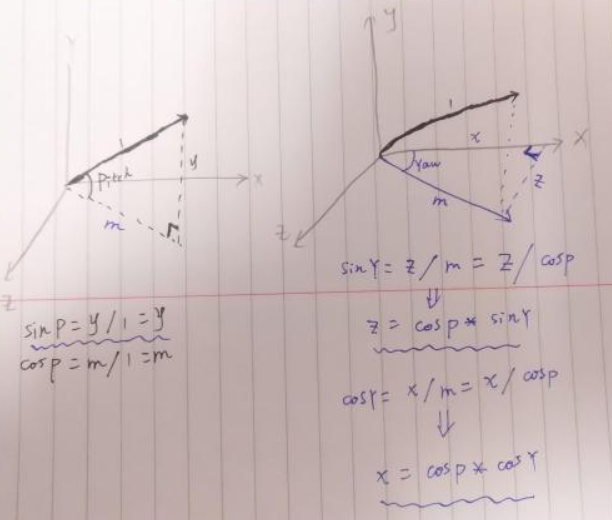 Y
1
Pitch
y
X
m
Z
sinP = y / 1 = y
cosP = m / 1 = m
y
1
x
X
Yaw
z
m
Z
sinY = z / m = z / cosP
⇓
z = cosP * sinY
cosY = x / m = x / cosP
⇓
x = cosP * cosY